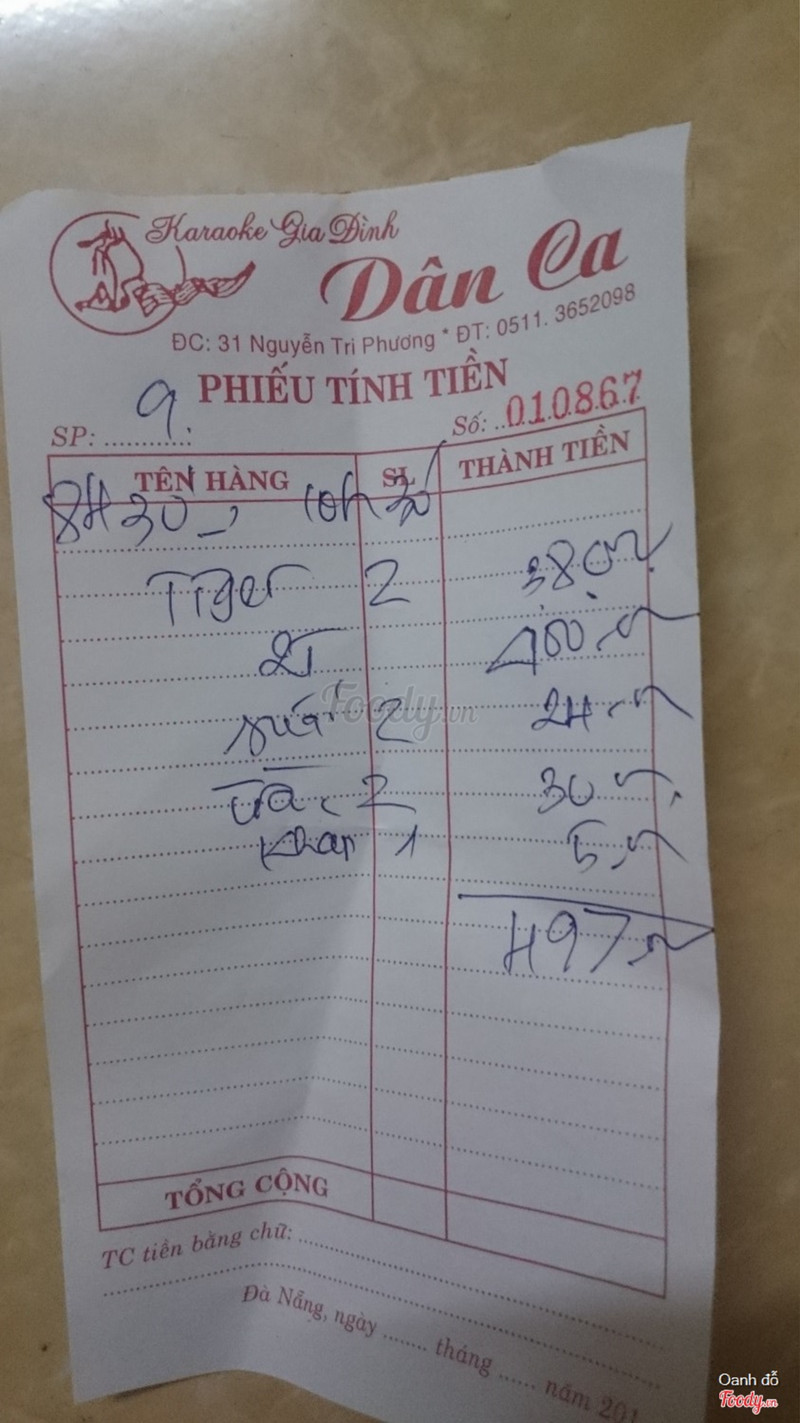 Karaoke Gia Đình
Dân Ca
ĐC: 31 Nguyễn Tri Phương * ĐT: 0511. 3652098
PHIẾU TÍNH TIỀN
SP: 9 Số: 010867
TÊN HÀNG SL THÀNH TIỀN
8H30 → 10h30
Tiger 2 38
2T 400
suối 2 24
Foody.vn
trà 2 30
khăn 1 5
497
TỔNG CỘNG
TC tiền bằng chữ:
Đà Nẵng, ngày ....... tháng ...... năm 201
Oanh đỗ
Foody.vn